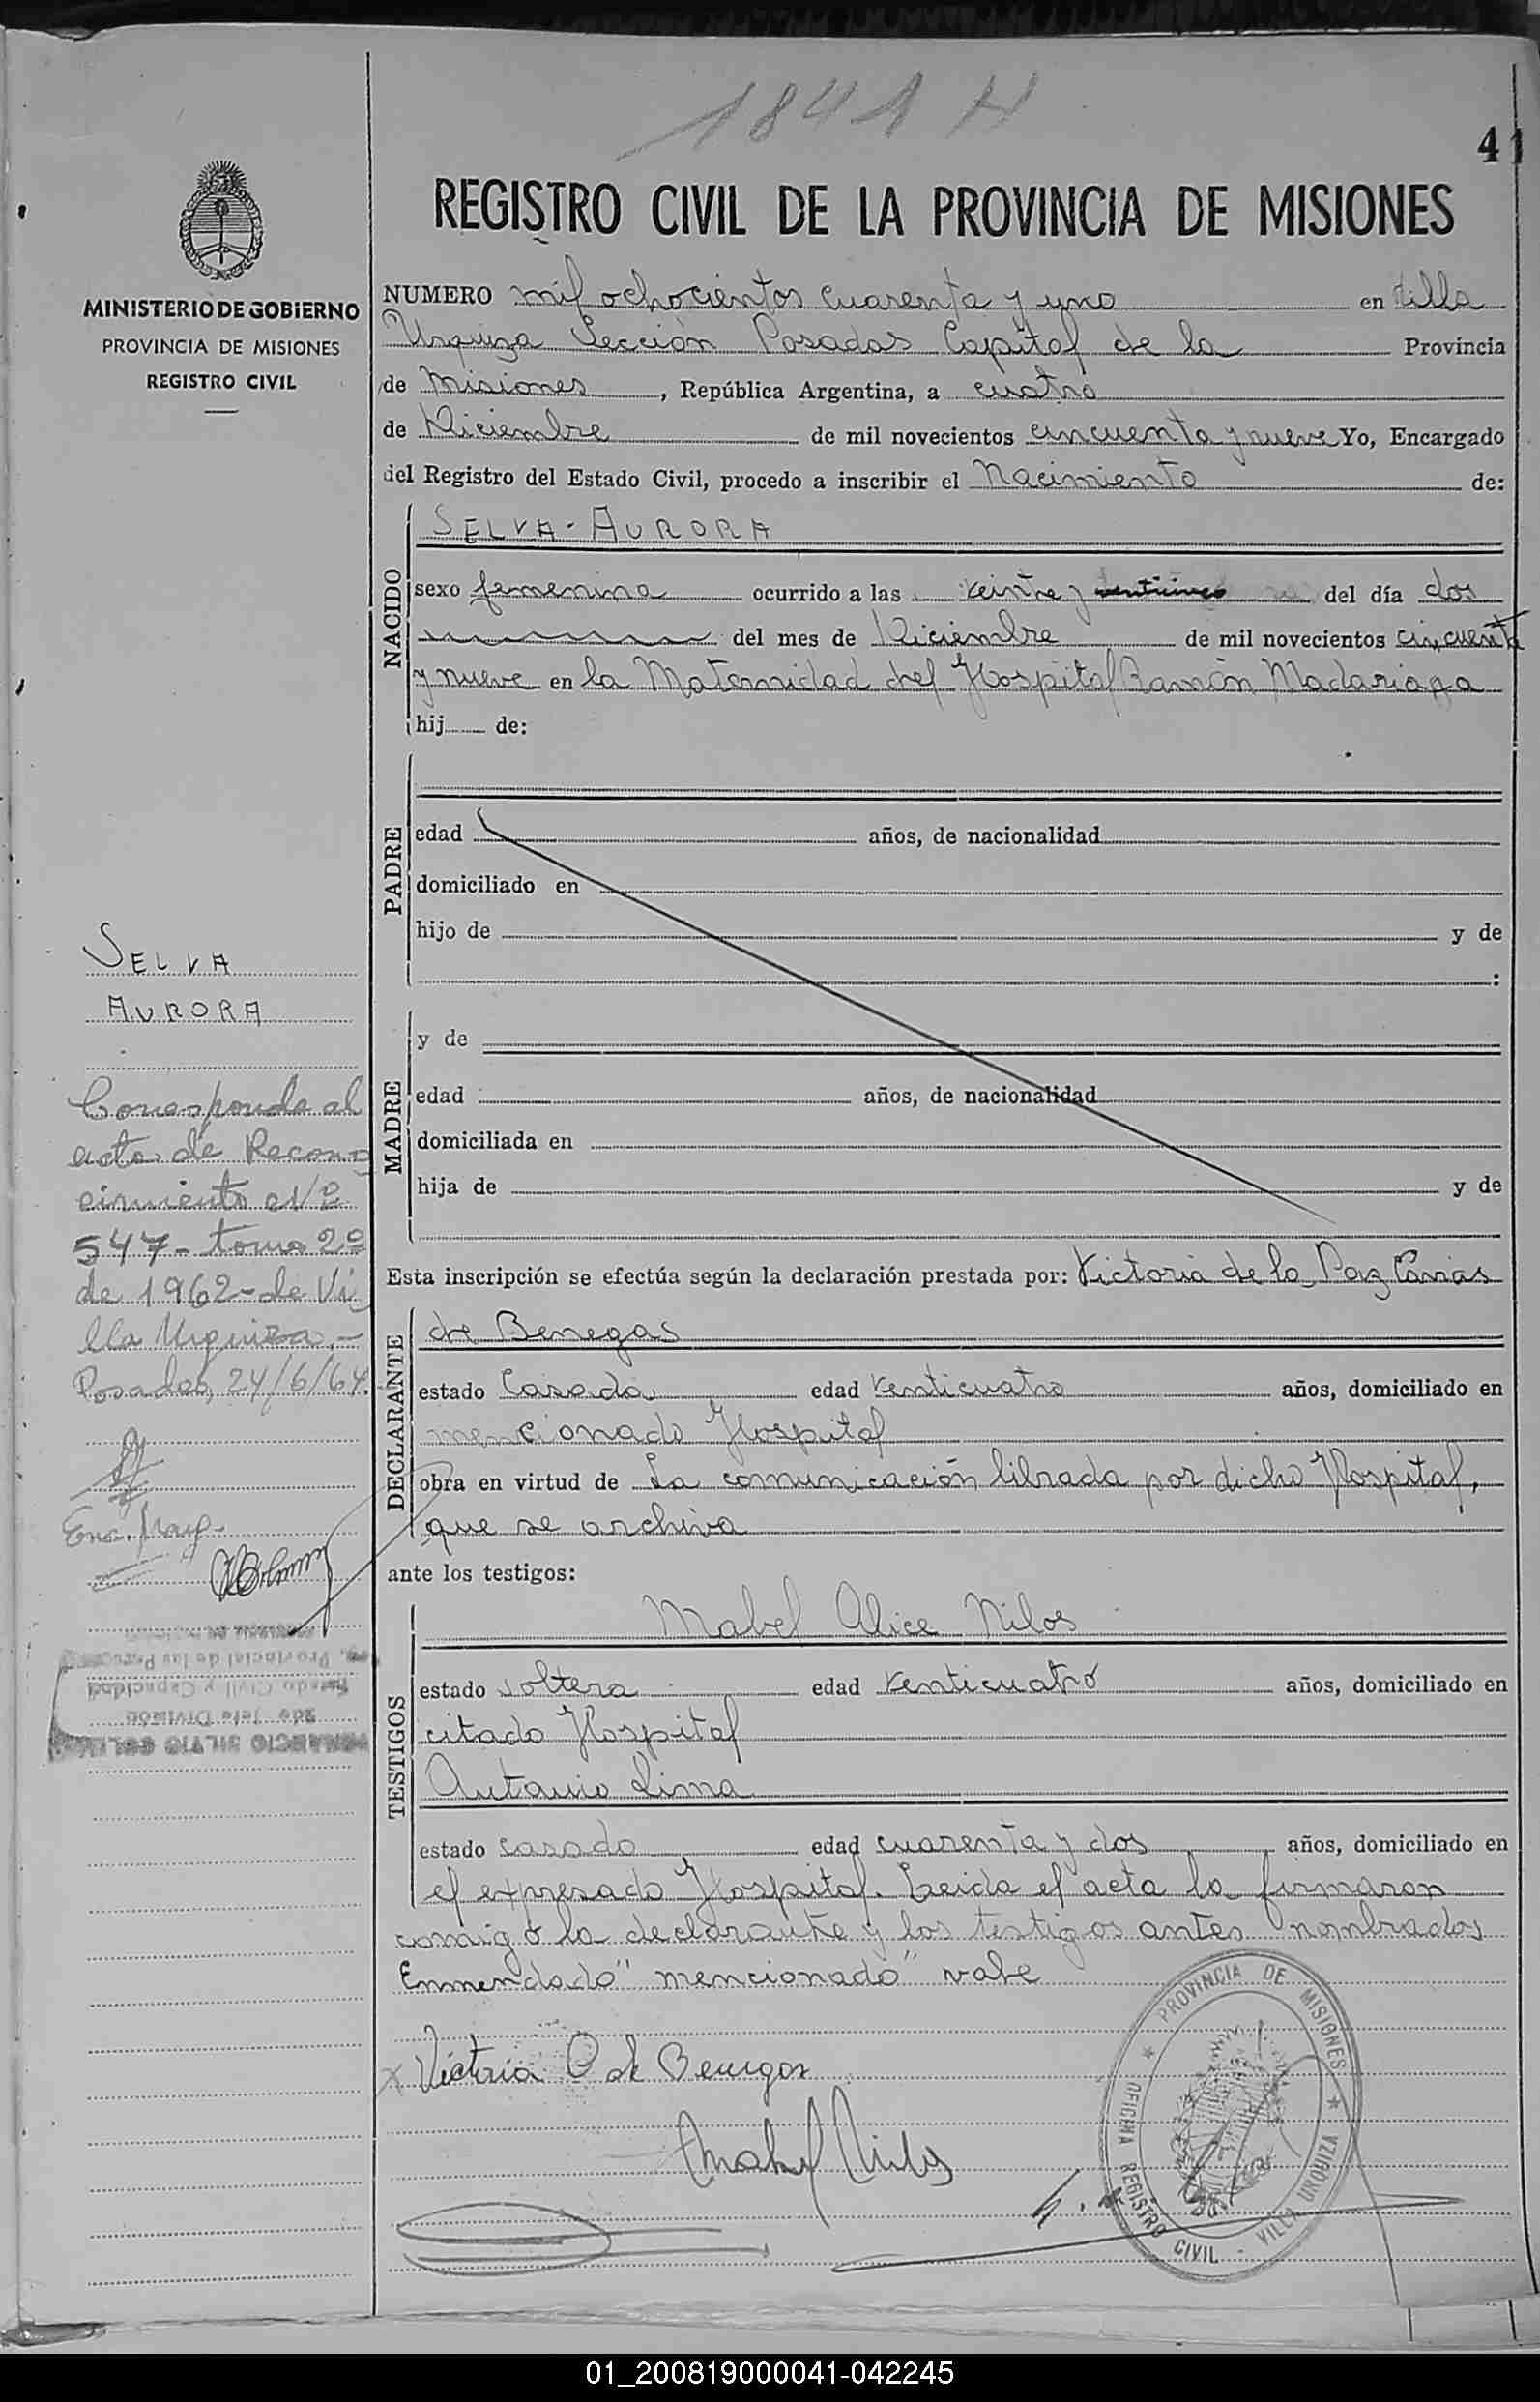 1841 H
41
REGISTRO CIVIL DE LA PROVINCIA DE MISIONES
MINISTERIO DE GOBIERNO
PROVINCIA DE MISIONES
REGISTRO CIVIL
NUMERO mil ochocientos cuarenta y uno en Villa
Urquiza Sección Posadas Capital de la Provincia
de Misiones, República Argentina, a cuatro
de Diciembre de mil novecientos cincuenta y nueve Yo, Encargado
del Registro del Estado Civil, procedo a inscribir el Nacimiento de:
NACIDO
SELVA - AURORA
sexo femenina ocurrido a las veinte y del día dos
del mes de Diciembre de mil novecientos cincuenta
y nueve en la Maternidad del Hospital Ramón Madariaga
hij de:
PADRE
edad años, de nacionalidad
domiciliado en
hijo de y de
:
MADRE
y de
edad años, de nacionalidad
domiciliada en
hija de y de
Esta inscripción se efectúa según la declaración prestada por: Victoria de la Paz
DECLARANTE
de Benegas
estado Casada edad venticuatro años, domiciliado en
mencionado Hospital
obra en virtud de La comunicación librada por dicho Hospital,
que se archiva
ante los testigos:
TESTIGOS
Mabel Alice Nilos
estado soltera edad venticuatro años, domiciliado en
citado Hospital
Antonio Lima
estado casado edad cuarenta y dos años, domiciliado en
el expresado Hospital. Leida el acta la firmaron
conmigo la declarante y los testigos antes nombrados
Enmendado "mencionado" vale
Victoria C de Benegas
PROVINCIA DE MISIONES
OFICINA REGISTRO CIVIL - VILLA URQUIZA
SELVA
AURORA
Corresponde al
acta de Recono
cimiento Nº
547 - tomo 2º
de 1962 - de Vi
lla Urquiza.-
Posadas, 24/6/64.
Provincial de las Personas
Estado Civil y Capacidad
2do Jefe División
01_200819000041-042245